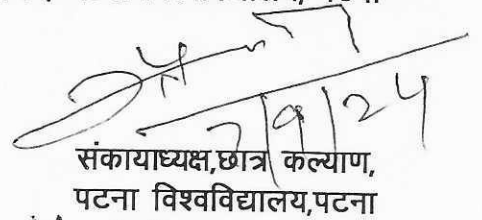 7/9/24
संकायाध्यक्ष,छात्र कल्याण,
पटना विश्वविद्यालय,पटना